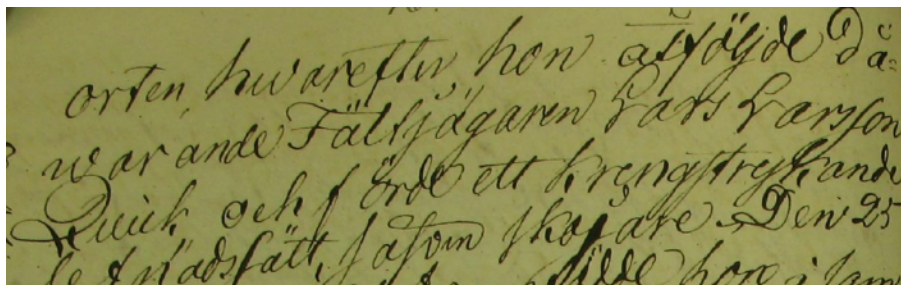 orten, hwarefter hon åtföljde då-
warande Fältjägaren Lars Larsson
Quick och förde ett kringstrykande
lefnadssätt, såsom skojare. Den 25
hon i sam